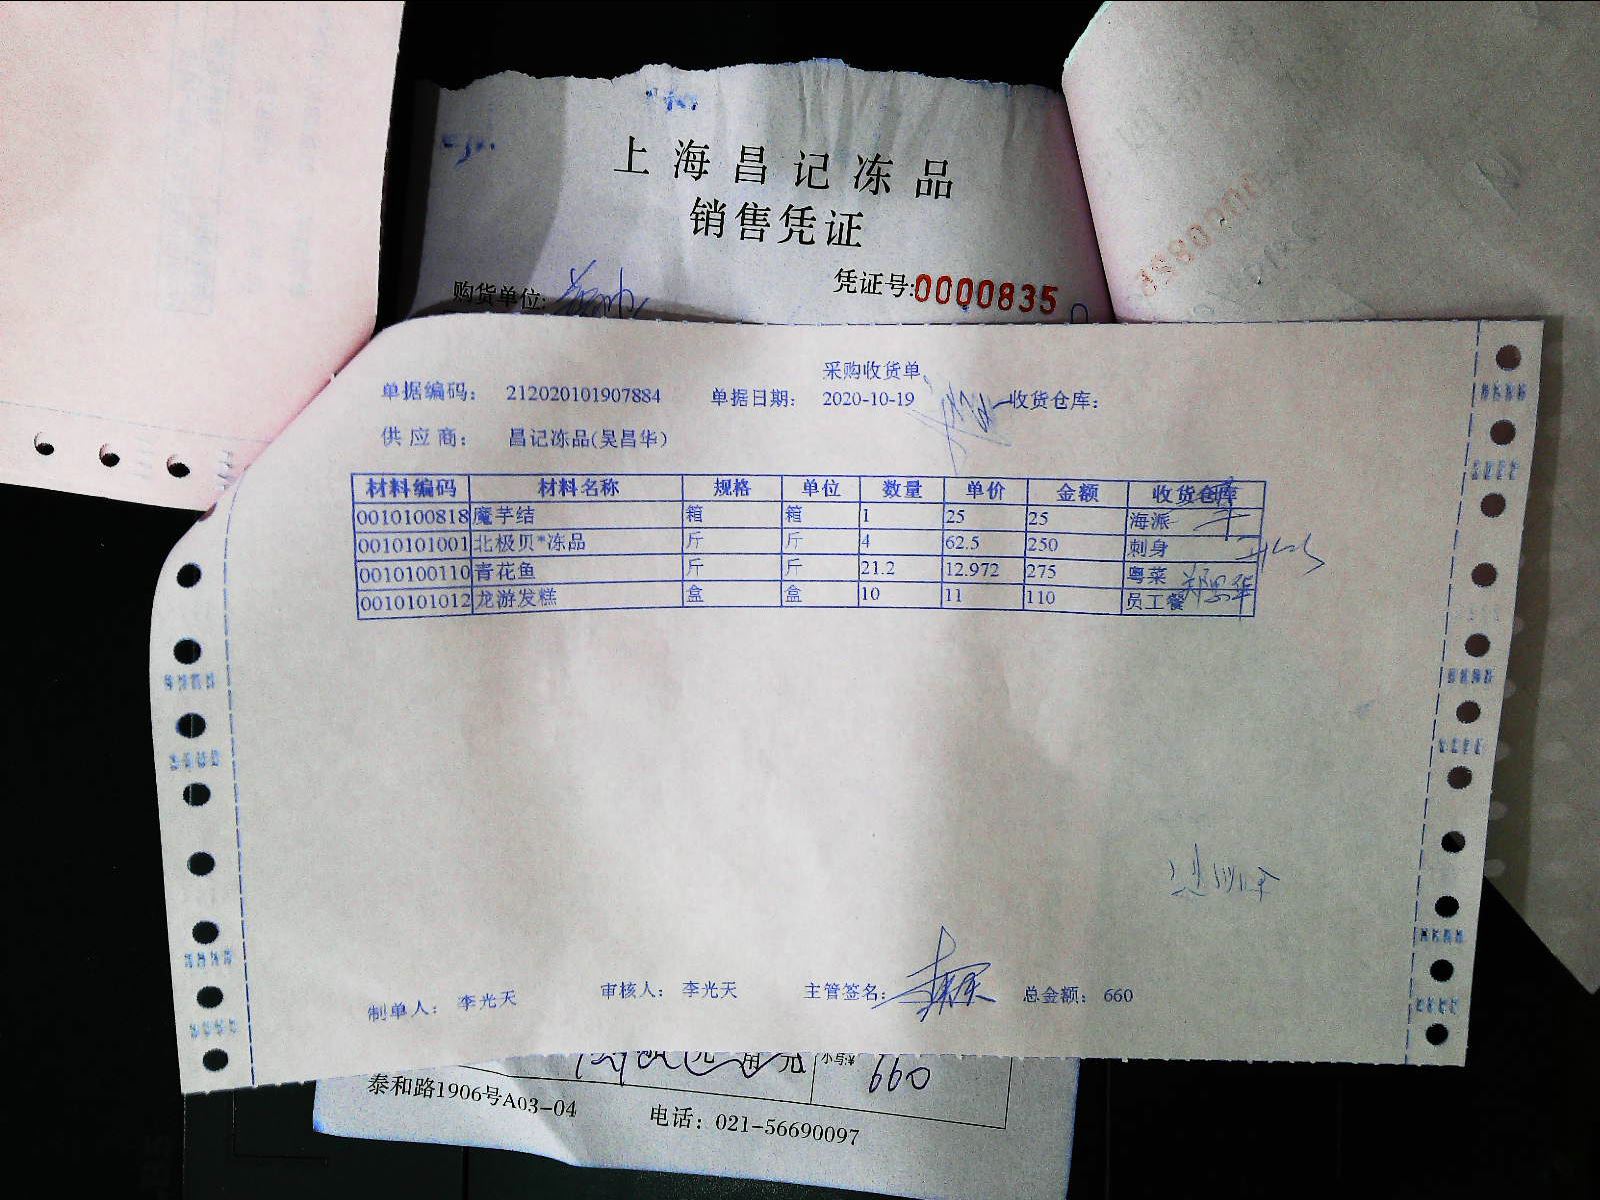 上海昌记冻品
销售凭证
购货单位:
凭证号:0000835
采购收货单
单据编码: 212020101907884 单据日期: 2020-10-19 收货仓库:
供应商: 昌记冻品(吴昌华)
材料编码 材料名称 规格 单位 数量 单价 金额 收货仓库
0010100818 魔芋结 箱 箱 1 25 25 海派
0010101001 北极贝*冻品 斤 斤 4 62.5 250 刺身
0010100110 青花鱼 斤 斤 21.2 12.972 275 粤菜
0010101012 龙游发糕 盒 盒 10 11 110 员工餐
制单人: 李光天 审核人: 李光天 主管签名: 总金额: 660
元 角 小写:¥ 660
泰和路1906号A03-04 电话: 021-56690097